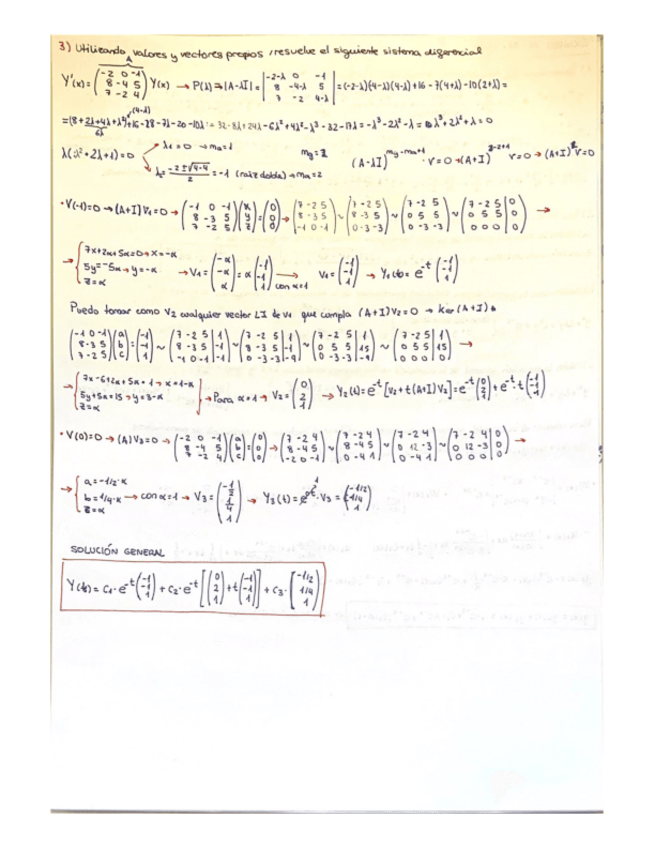 3) Utilizando valores y vectores propios, resuelve el siguiente sistema diferencial
Y'(x) = (-2 0 -1; 8 -4 5; 7 -2 4) Y(x) → P(λ) = |A-λI| = |-2-λ 0 -1; 8 -4-λ 5; 7 -2 4-λ| = (-2-λ)(4-λ)(4-λ)+16-7(4+λ)-10(2+λ) =
λ(λ²+2λ+1)=0 λ1=0 → ma=1
λ2 = (-2±√4-4)/2 = -1 (raíz doble) → ma=2
• V(-1)=0 → (A+I)V1=0 → (-1 0 -1; 8 -3 5; 7 -2 5)(x; y; z) = (0; 0; 0) → (7 -2 5; 8 -3 5; -1 0 -1) ~ (7 -2 5; 8 -3 5; 0 -3 -3) ~ (7 -2 5; 0 5 5; 0 -3 -3) ~ (7 -2 5 | 0; 0 5 5 | 0; 0 0 0 | 0) →
→ { 7x+2α+5α=0 → x=-α; 5y=-5α → y=-α; z=α → V1 = (-α; -α; α) = α(-1; -1; 1) con α=1 → V1 = (-1; -1; 1) → Y1(t) = e^-t (-1; -1; 1)
Puedo tomar como V2 cualquier vector LI de V1 que cumpla (A+I)²V2=0 → Ker(A+I)²
(-1 0 -1; 8 -3 5; 7 -2 5)(a; b; c) = (-1; -1; 1) ~ (7 -2 5 | 1; 8 -3 5 | -1; -1 0 -1 | -1) ~ (7 -2 5 | 1; 8 -3 5 | -1; 0 -3 -3 | -9) ~ (7 -2 5 | 1; 0 5 5 | 15; 0 -3 -3 | -9) ~ (7 -2 5 | 1; 0 5 5 | 15; 0 0 0 | 0) →
→ { 7x-6+2α+5α=1 → x=1-α; 5y+5α=15 → y=3-α; z=α } → Para α=1 → V2 = (0; 2; 1) → Y2(t) = e^-t [V2+t(A+I)V2] = e^-t (0; 2; 1) + e^-t·t (-1; -1; 1)
• V(0)=0 → (A)V3=0 → (-2 0 -1; 8 -4 5; 7 -2 4)(a; b; c) = (0; 0; 0) → (7 -2 4; 8 -4 5; -2 0 -1) ~ (7 -2 4; 8 -4 5; 0 -4 1) ~ (7 -2 4; 0 12 -3; 0 -4 1) ~ (7 -2 4 | 0; 0 12 -3 | 0; 0 0 0 | 0) →
→ { a=-1/2·α; b=1/4·α; z=α → con α=1 → V3 = (-1/2; 1/4; 1) → Y3(t) = e^0t·V3 = (-1/2; 1/4; 1)
SOLUCIÓN GENERAL
Y(t) = C1·e^-t (-1; -1; 1) + C2·e^-t [(0; 2; 1)+t(-1; -1; 1)] + C3·[-1/2; 1/4; 1]